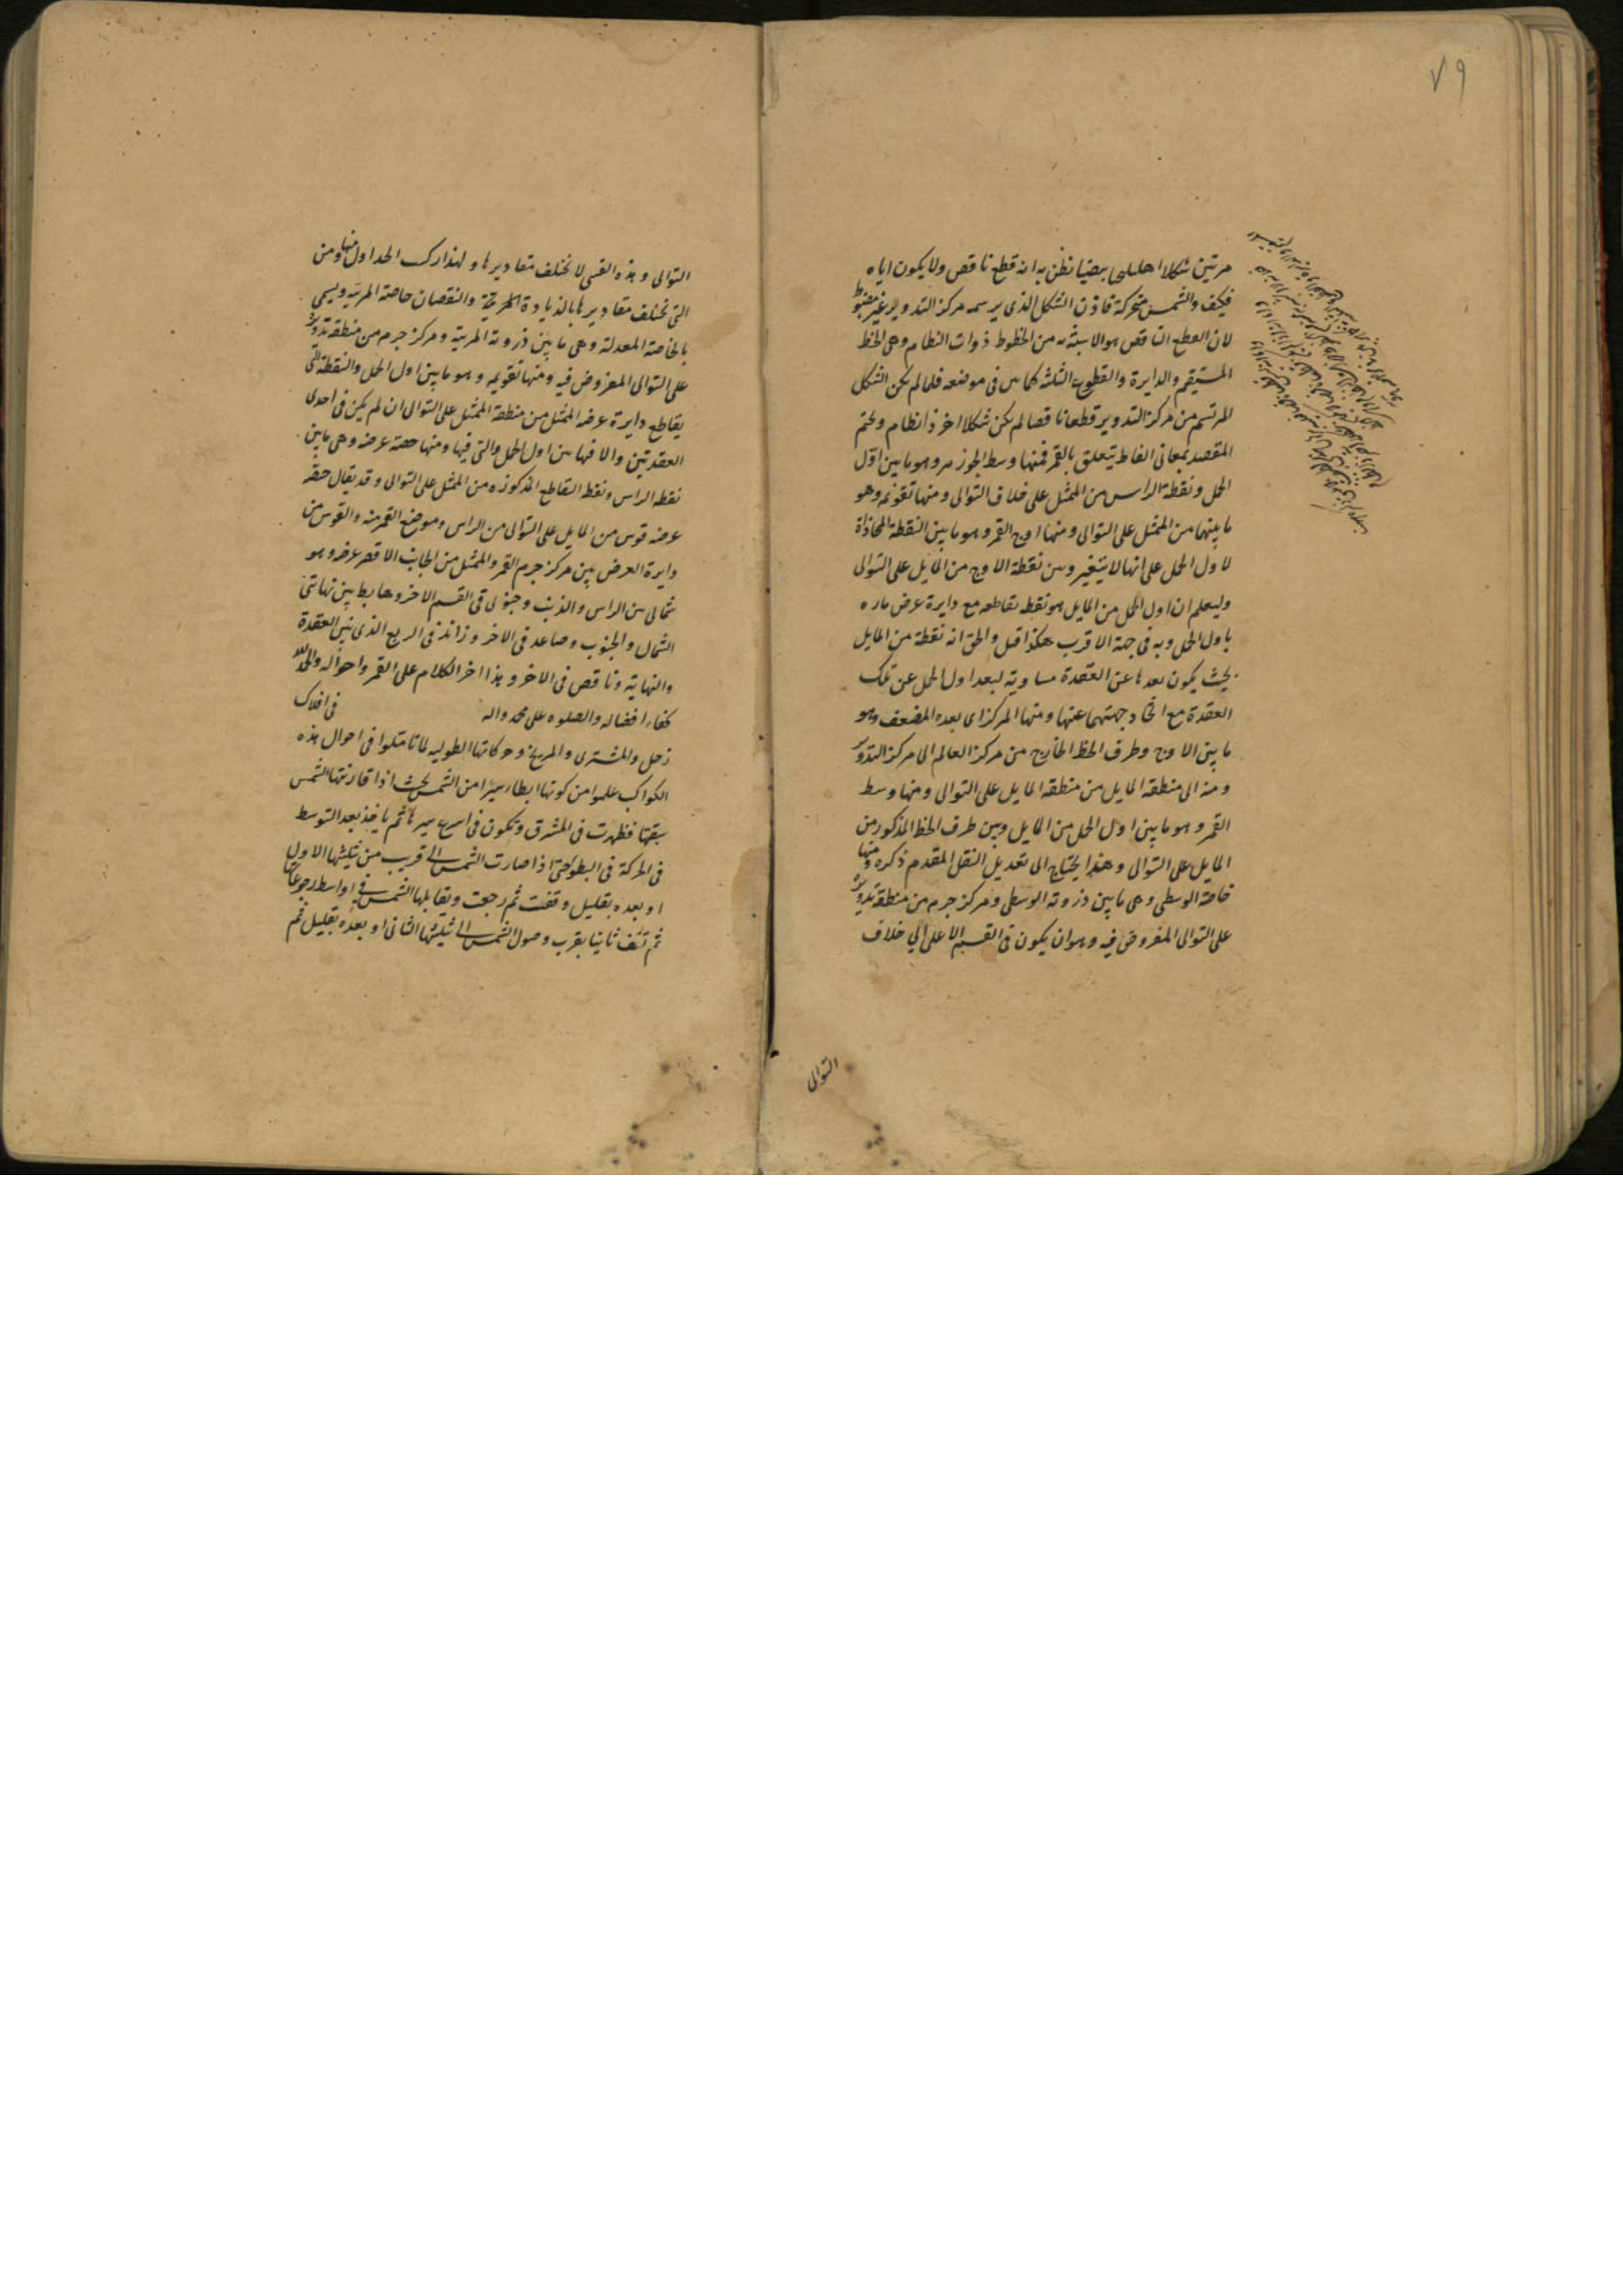 ٧٩
مرتين شكلا اهليلجيا بيضيا نظن به انه قطع ناقص ولا يكون اياه
فكيف والشمس متحركة فاذن الشكل الذى يرسمه مركز التدوير غير مضبوط
لان القطع الناقص هو الاشبه به من الخطوط ذوات النظام وهى الخط
المستقيم والدايرة والقطوع الثلثة كما بين فى موضعه فلما لم يكن الشكل
المرتسم من مركز التدوير قطعا ناقصا لم يكن شكلا اخر ذا نظام ونختم
المقصد بمعانى الفاظ يتعلق بالقمر فمنها وسط الجوزهر وهو ما بين اوّل
الحمل ونقطة الراس من الممثل على خلاف التوالى ومنها تقويمه وهو
ما بينهما من الممثل على التوالى ومنها اوج القمر وهو ما بين النقطة المحاذاة
لاول الحمل على انها لا يتغير وبين نقطة الاوج من المايل على التوالى
وليعلم ان اول الحمل من المايل هو نقطة تقاطعه مع دايرة عرض ماره
باول الحمل وبه فى جهة الاقرب هكذا قيل والحق انه نقطة من المايل
بحيث يكون بعدها عن العقدة مساوية لبعد اول الحمل عن تلك
العقدة مع اتحاد جهتهما عنها ومنها المركز اى بعده المضعف وهو
ما بين الاوج وطرف الخط الخارج من مركز العالم الى مركز التدوير
ومنه الى منطقة المايل من منطقة المايل على التوالى ومنها وسط
القمر وهو ما بين اول الحمل من المايل وبين طرف الخط المذكور من
المايل على التوالى وهذا يحتاج الى تعديل النقل المقدم ذكره ومنها
خاصة الوسطى وهى ما بين ذروته الوسطى ومركز جرمه من منطقة تدويره
على التوالى المفروض فيه وهو ان يكون فى القسم الاعلى الى خلاف
التوالى
التوالى وهذه القسى لا تختلف مقاديرها ولهذا ركب الجداول منها ومن
التى تختلف مقاديرها بالزيادة والنقصان خاصته المرئية ويسمى
بالخاصة المعدلة وهى ما بين ذروته المرئية ومركز جرمه من منطقة تدويره
على التوالى المفروض فيه ومنها تقويمه وهو ما بين اول الحمل والنقطة التى
يقاطع دايرة عرضه الممثل من منطقة الممثل على التوالى ان لم يكن فى احدى
العقدتين والا فما بين اول الحمل والتى فيها ومنها حصة عرضه وهى ما بين
نقطة الراس ونقطة التقاطع المذكوره من الممثل على التوالى وقد يقال حصة
عرضه قوس من المايل على التوالى من الراس وموضع القمر منه والقوس من
دايرة العرض بين مركز جرم القمر والممثل من الجانب الاقصر عرضه وهو
شمالى بين الراس والذنب وجنوبى فى القسم الاخر وهابط بين نهايتى
الشمال والجنوب وصاعد فى الاخر وزائد فى الربع الذى بين العقدة
والنهاية وناقص فى الاخر وهذا اخر الكلام على القمر واحواله والحمد لله
كفاء افضاله والصلوه على محمد واله فى افلاك
زحل والمشترى والمريخ وحركاتها الطوليه لما تاملوا فى احوال هذه
الكواكب علموا من كونها ابطا سيرا من الشمس بحيث اذا قارنتها الشمس
سبقتها فظهرت فى المشرق وتكون فى اسرع سيرها ثم ياخذ بعد التوسط
فى الحركة فى البطؤ حتى اذا صارت الشمس الى قريب من تثليثها الاول
او بعده بقليل وقفت ثم رجعت ويقابلها الشمس فى اواسط رجوعاتها
ثم تقف ثانيا بقرب وصول الشمس الى تثليثها الثانى او بعده بقليل ثم